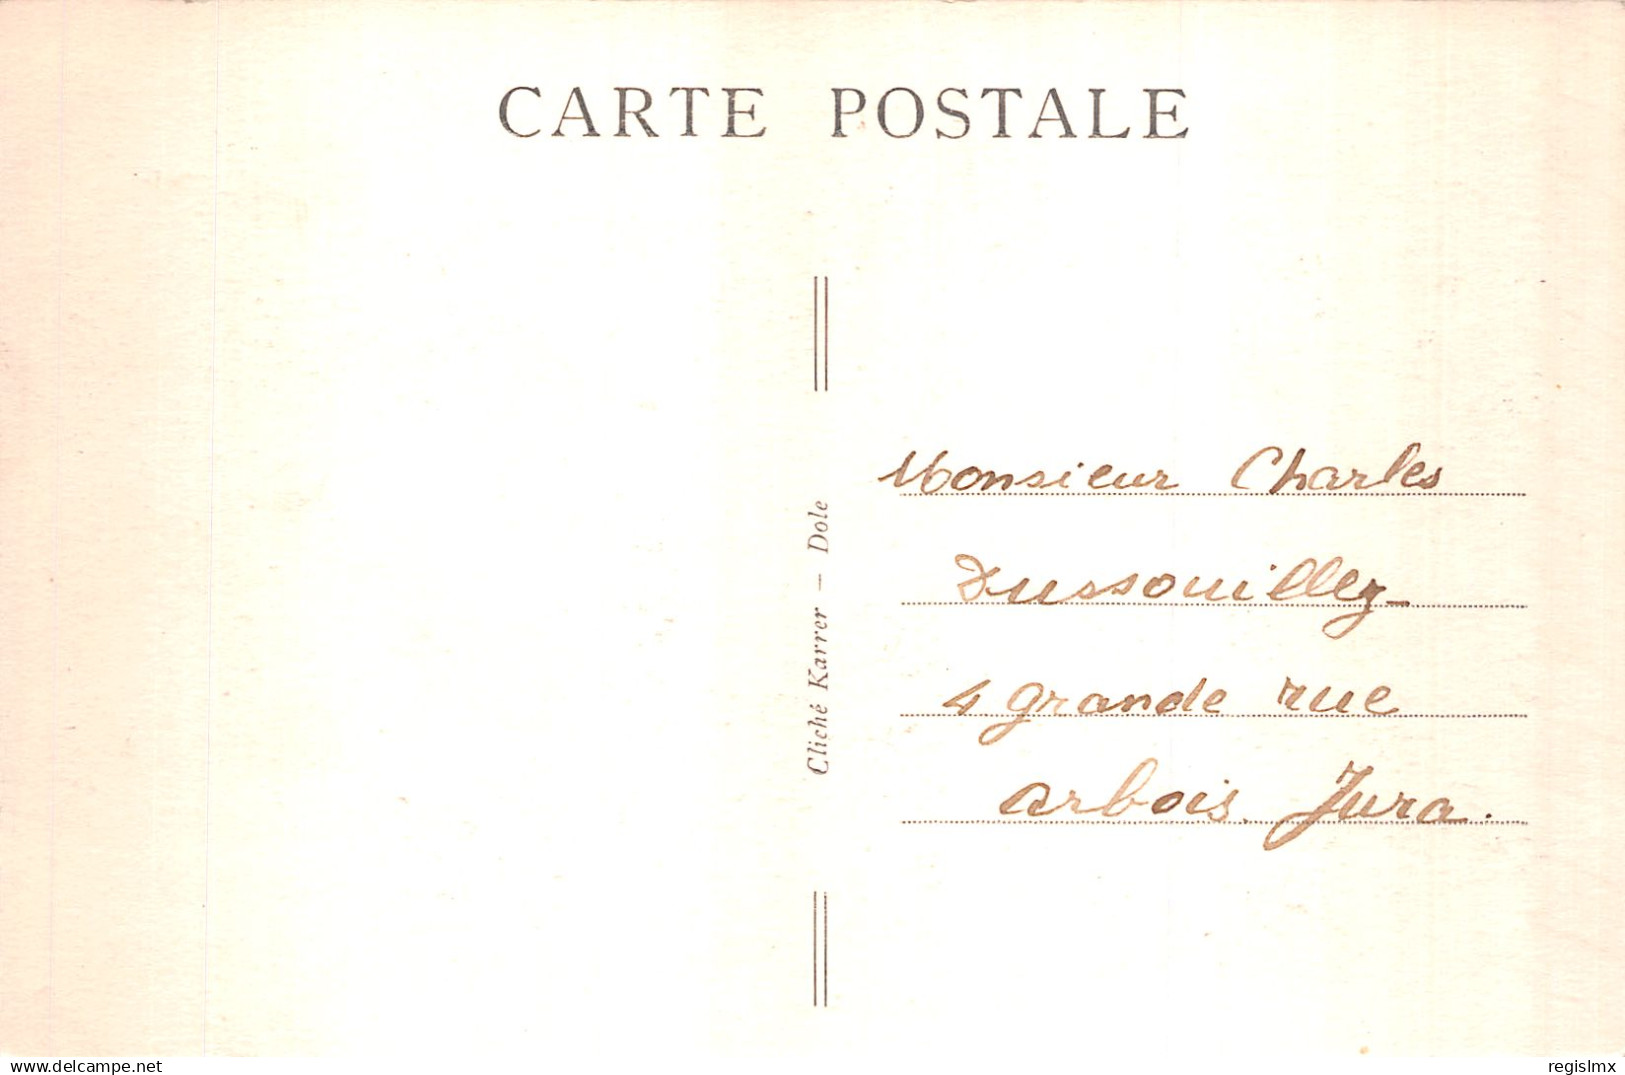 CARTE POSTALE
Cliché Karrer – Dole
Monsieur Charles
Dussouillez
4 grande rue
arbois. Jura.
www.delcampe.net
regislmx